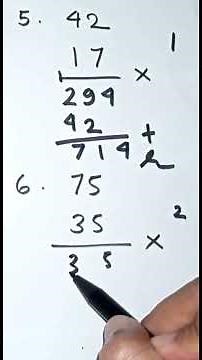 5. 42
1
17 ×
294
42 +
714
6. 75
2
35 ×
3 5